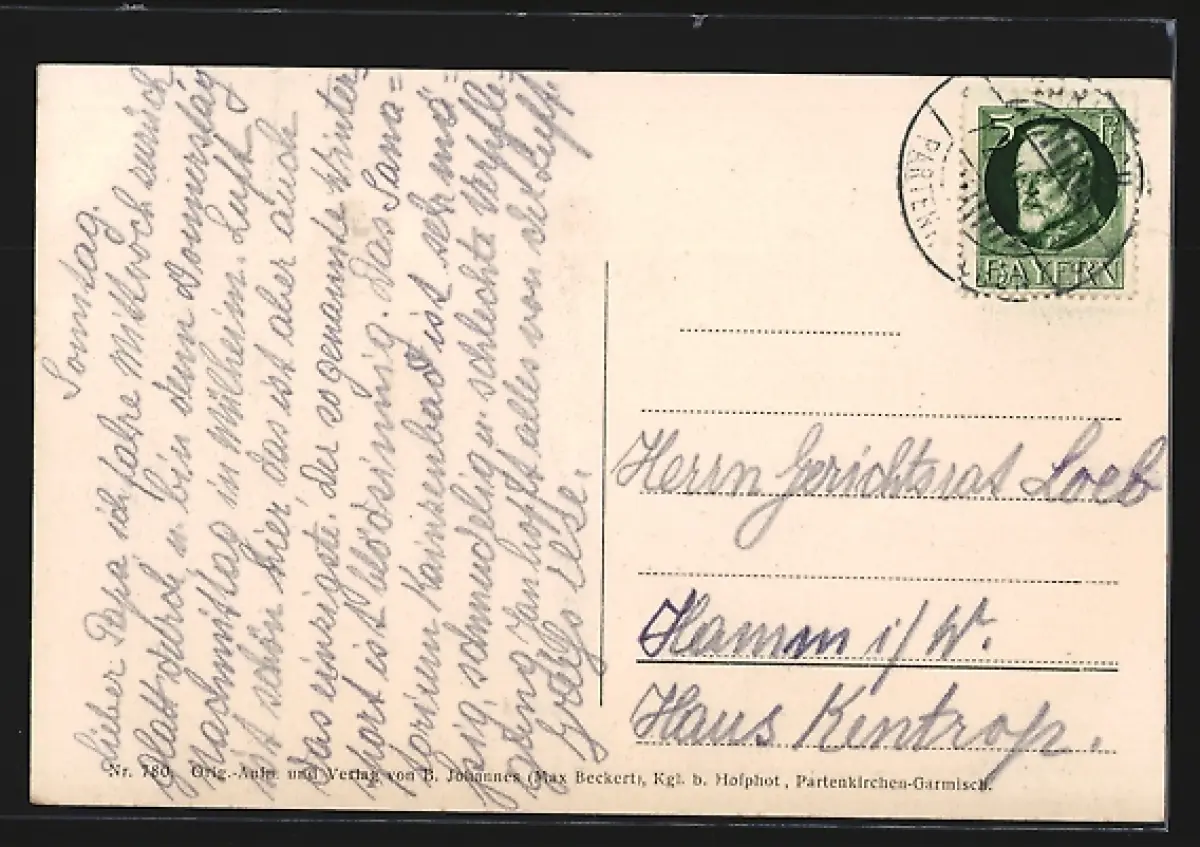 Sonntag.
Lieber Papa ich fahre Mittwoch zurück
glatt gedroh u. bin dann Donnerstag
Nachmittag in Mülheim. Luft
ist schön hier das ist aber auch
das einzigste. der sogenannte Winter-
sport ist blödsinnig. Das Sana=
torium Kainzenbad ist sehr mä-
ssig, schmudelig u. schlechte Verpfle-
gung Janhofft alles von der Luft
Grüße
5 Pf
BAYERN
PARTENK
Herrn Gerichtsrat Loeb
Hamm i/W.
Haus Kentrop.
Nr. 780. Orig.-Aufn. und Verlag von B. Johannes (Max Beckert), Kgl. b. Hofphot, Partenkirchen-Garmisch.